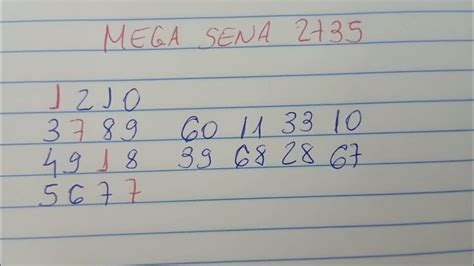 MEGA SENA 2735
1 2 1 0
3 7 8 9 60 11 33 10
4 9 1 8 39 68 28 67
5 6 7 7